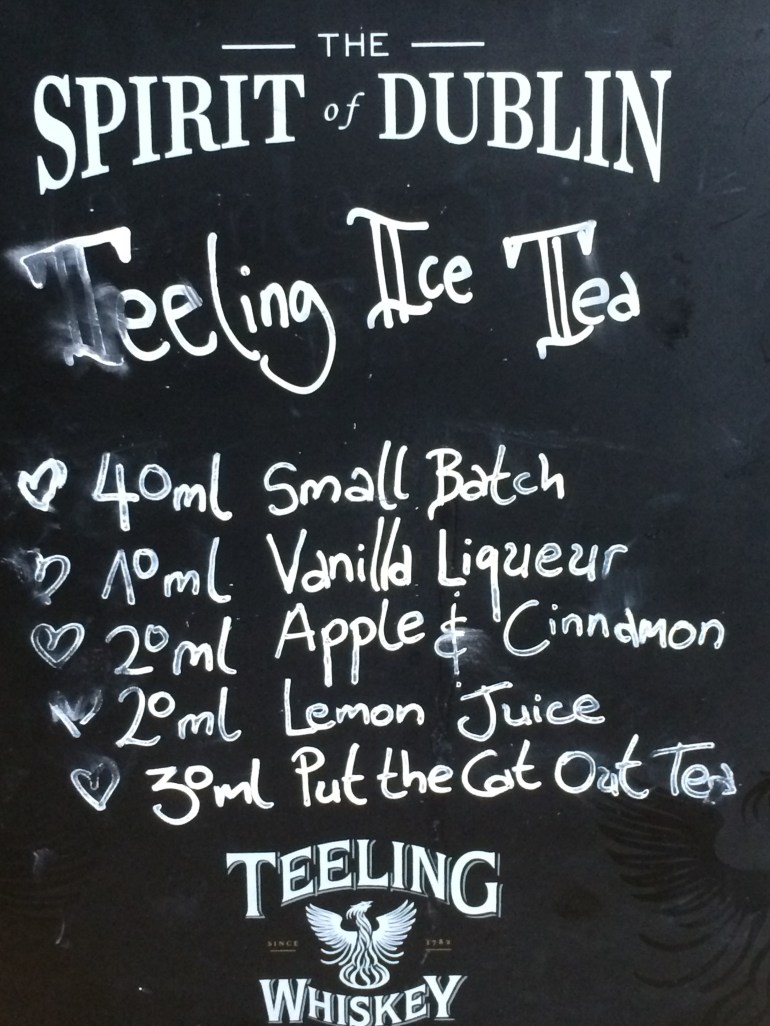 THE
SPIRIT of DUBLIN
Teeling Ice Tea
40ml Small Batch
10ml Vanilla Liqueur
20ml Apple & Cinnamon
20ml Lemon Juice
30ml Put the Cat Out Tea
TEELING
SINCE 1782
WHISKEY